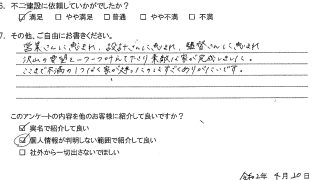 6. 不二建設に依頼していかがでしたか？
☑ 満足 □ やや満足 □ 普通 □ やや不満 □ 不満
7. その他、ご自由にお書きください。
営業さんに恵まれ、設計さんに恵まれ、監督さんに恵まれ
沢山の要望を一つ一つ叶えて下さり素敵な家が完成しました。
ここまで不満の1つもなく家が建ったことはすごくありがたいです。
このアンケートの内容を他のお客様に紹介して良いですか？
☑ 実名で紹介して良い
☑ 個人情報が判明しない範囲で紹介して良い
□ 社外から一切出さないでほしい
令和2年 4月20日